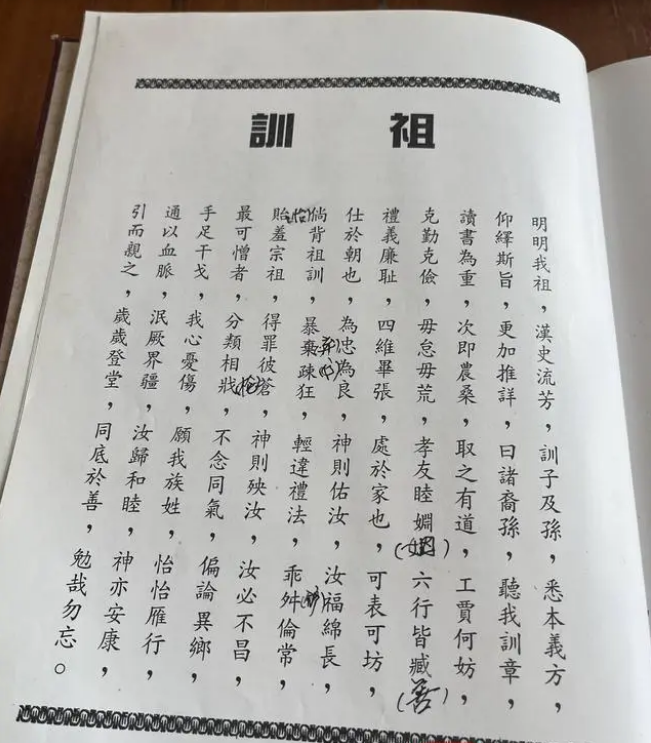 祖訓
明明我祖，漢史流芳，訓子及孫，悉本義方，
仰繹斯旨，更加推詳，曰諸裔孫，聽我訓章，
讀書為重，次即農桑，取之有道，工賈何妨，
克勤克儉，毋怠毋荒，孝友睦婣(姻)六行皆臧(善)，
禮義廉恥，四維畢張，處於家也，可表可坊，
仕於朝也，為忠為良，神則佑汝，汝福綿長，
倘背祖訓，暴棄疎狂，輕違禮法，乖舛倫常，
貽羞宗祖，得罪彼蒼，神則殃汝，汝必不昌，
最可憎者，分類相戕，不念同氣，偏論異鄉，
手足干戈，我心憂傷，願我族姓，怡怡雁行，
通以血脈，泯厥界疆，汝歸和睦，神亦安康，
引而親之，歲歲登堂，同底於善，勉哉勿忘。